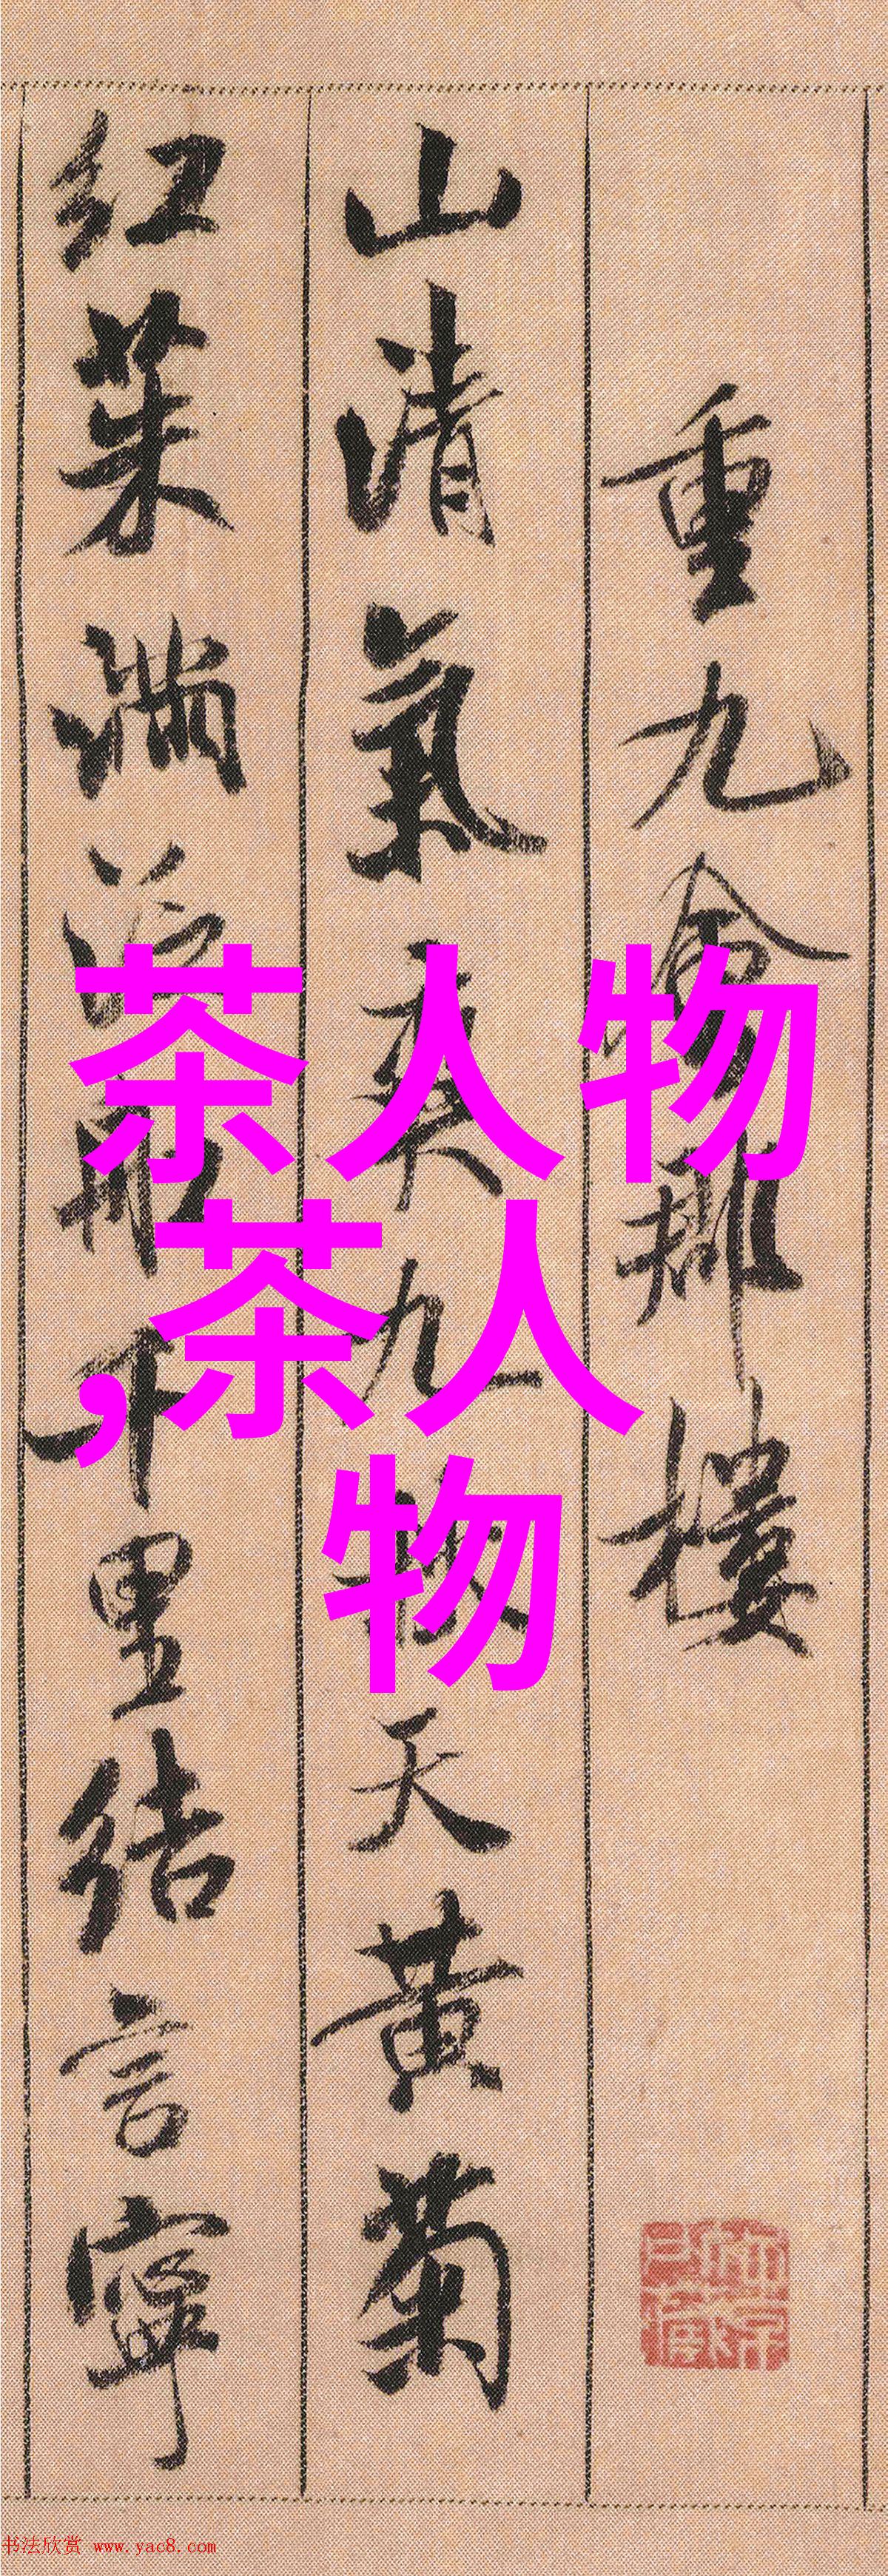 重九會郡樓
山清氣爽九秋天黃菊
紅茱滿泛船千里結言寧
茶人物
,茶人
物
书法欣赏 www.yac8.com